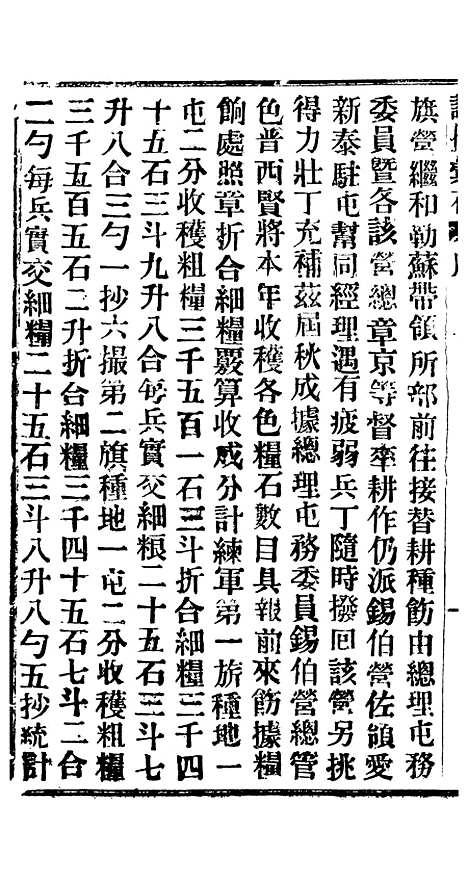 旗營繼和勒蘇帶領所部前往接替耕種飭由總理屯務
委員暨各該營總章京等督率耕作仍派錫伯營佐領愛
新泰駐屯幫同經理遇有疲弱兵丁隨時撥囘該營另挑
得力壯丁充補茲屆秋成據總理屯務委員錫伯營總管
色普西賢將本年收穫各色糧石數目具報前來飭據糧
餉處照章折合細糧覈算收成分計練軍第一旂種地一
屯二分收穫粗糧三千五百一石三斗折合細糧三千四
十五石三斗九升八合每兵實交細粮二十五石三斗七
升八合三勺一抄六撮第二旗種地一屯二分收穫粗糧
三千五百五石二升折合細糧三千四十五石七斗二合
二勺每兵實交細糧二十五石三斗八升八勺五抄統計